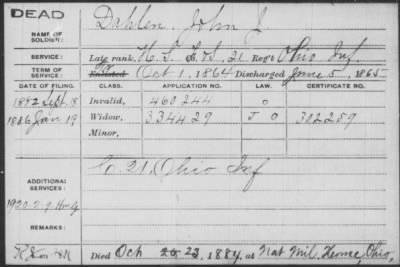 DEAD
NAME OF SOLDIER: Dahlen, John J.
SERVICE: Late rank, H. S. F. & S. 21 Reg't Ohio Inf.
TERM OF SERVICE: Enlisted Oct 1, 1864 Discharged June 5, 1865
DATE OF FILING. CLASS. APPLICATION NO. LAW. CERTIFICATE NO.
1882 Sept. 18 Invalid, 460244 O
1886 Jan 19 Widow, 334429 J O 302259
Minor,
C. 21, Ohio Inf
ADDITIONAL SERVICES:
1920-2-9
REMARKS:
Died Oct 23, 1884, at Nat Mil. Home, Ohio,